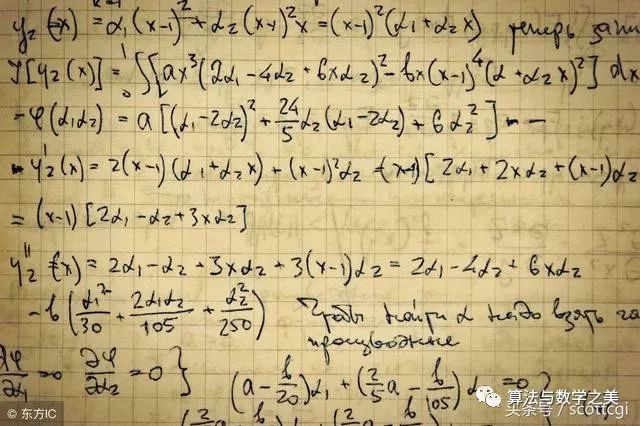 y₂(x) = α₁(x-1)² + α₂(x-1)²x = (x-1)²(α₁+α₂x) теперь запи
J[y₂(x)] = ∫₀¹[ax³(2α₁-4α₂+6xα₂)² - bx(x-1)⁴(α+α₂x)²]dx
-φ(α₁α₂) = a[(α₁-2α₂)² + 24/5 α₂(α₁-2α₂) + 6α₂²] - -
- y₂'(x) = 2(x-1)(α₁+α₂x) + (x-1)²α₂ = (x-1)[2α₁+2xα₂+(x-1)α₂
= (x-1)[2α₁-α₂+3xα₂]
y₂''(x) = 2α₁-α₂+3xα₂+3(x-1)α₂ = 2α₁-4α₂+6xα₂
-b(α₁²/30 + 2α₁α₂/105 + α₂²/250) Чтобы найти α надо взять
производные
∂φ/∂α₁ = 0 ∂φ/∂α₂ = 0 } (a - b/20)α₁ + (2/5 a - b/105)α₂ = 0 }
算法与数学之美
头条号 / scottcgi
© 东方IC